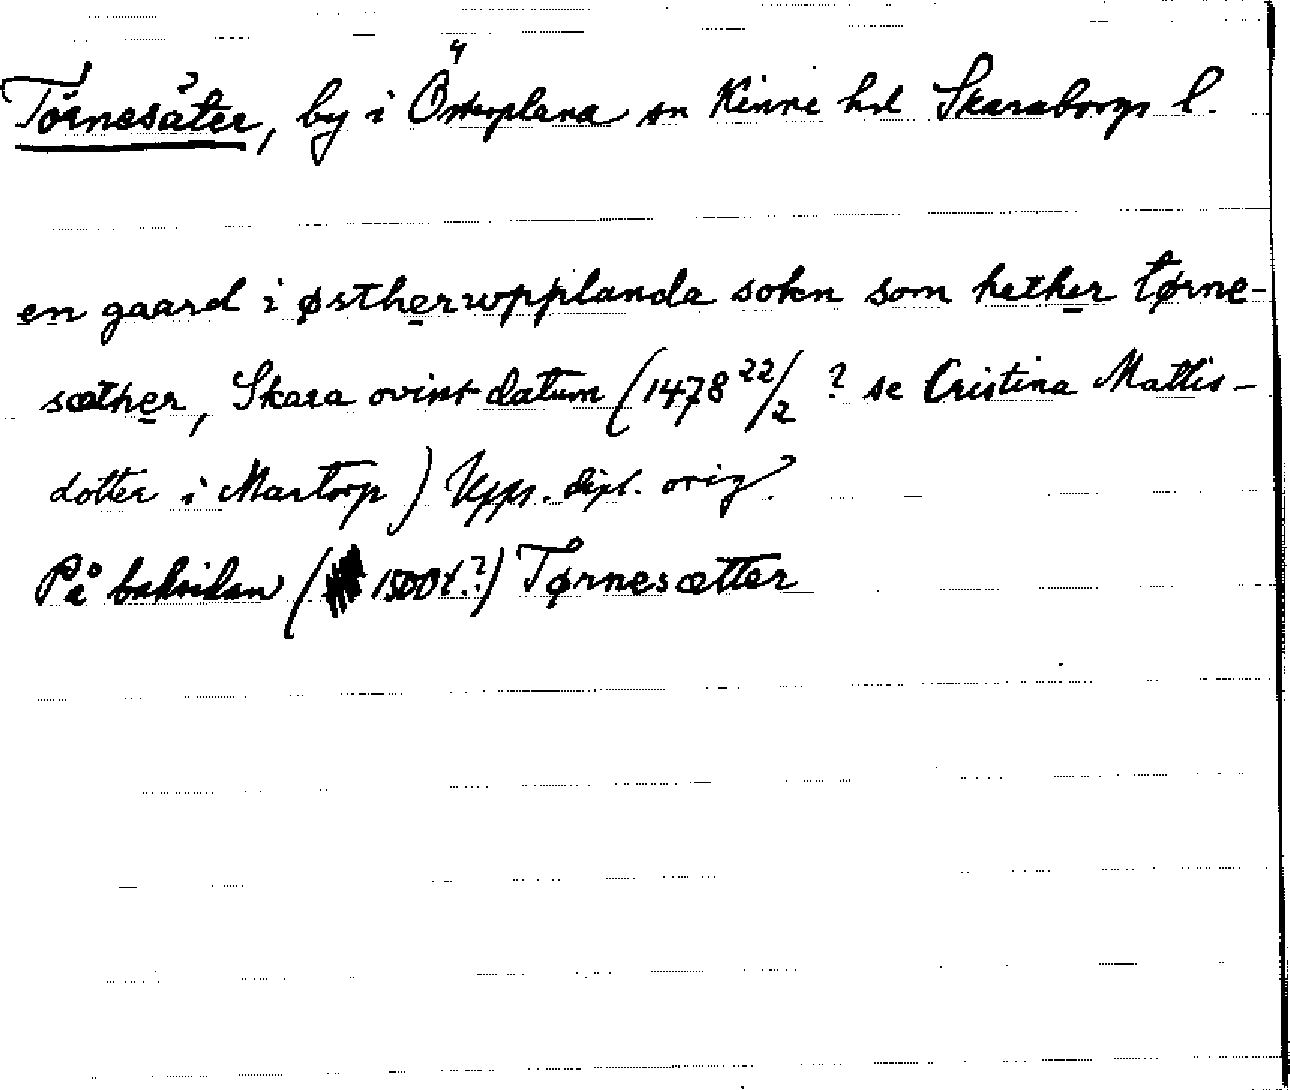 Törnesäter, by i Österplana sn Kinne hd Skaraborgs l.
en gaard i østherwpplanda sokn som hether tørne-
sæther, Skara ovist datum (1478 22/2 ? se Cristina Mattis-
dotter i Martorp) Upps. dipl. orig.
På baksidan (1500t.?) Tørnesætter